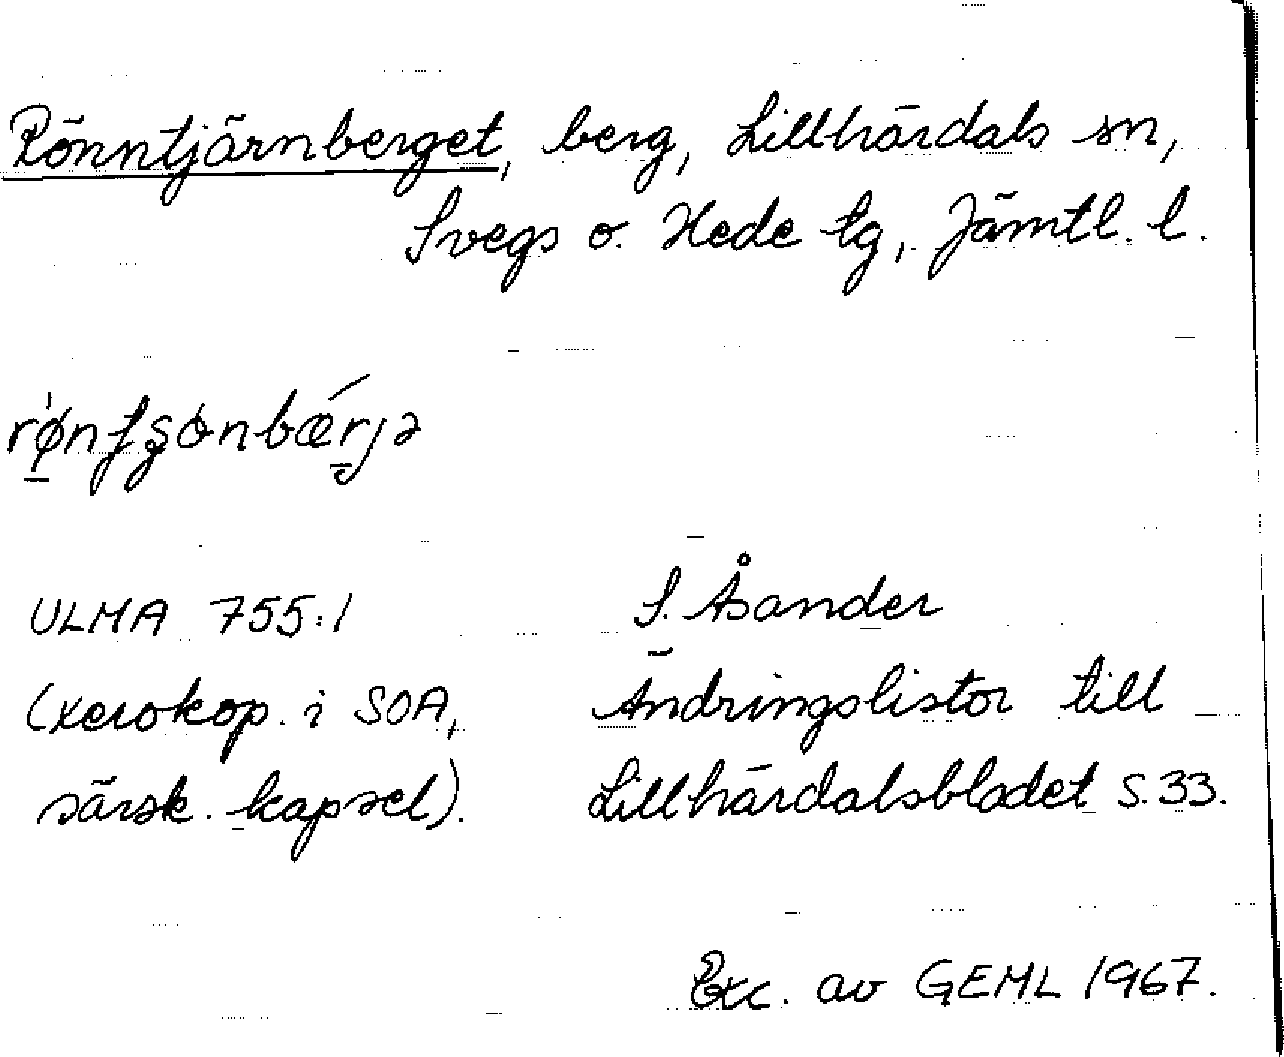 Rönntjärnberget, berg, Lillhärdals sn,
Svegs o. Hede tg, Jämtl. l.
ULMA 755:1
S. Åsander
(xerokop. i SOA,
Ändringslistor till
särsk. kapsel).
Lillhärdalsbladet s. 33.
Exc. av GEML 1967.